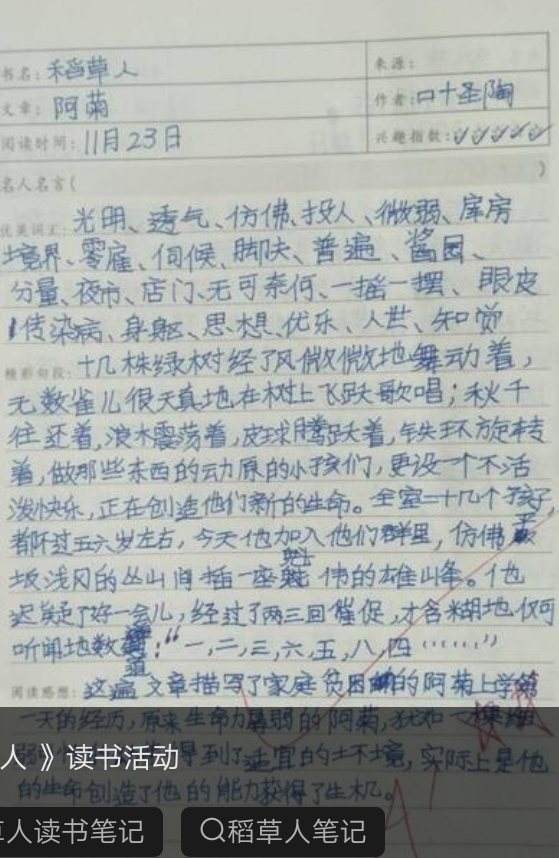 书名: 稻草人 来源:
文章: 阿菊 作者: 叶圣陶
阅读时间: 11月23日 兴趣指数: ✓✓✓✓✓
名人名言( )
优美词汇: 光明、透气、仿佛、投人、微弱、库房
境界、零雇、伺候、脚夫、普遍、酱园、
分量、夜市、店门、无可奈何、一摇一摆、眼皮
传染病、身躯、思想、优乐、人世、知觉
精彩句段: 十几株绿树经了风微微地舞动着,
无数雀儿很天真地在树上飞跃歌唱;秋千
往还着,浪木震荡着,皮球腾跃着,铁环旋转
着,做那些东西的动原的小孩们,更没一个不活
泼快乐,正在创造他们新的生命。全室二十几个孩子,
都不过五六岁左右,今天他加入他们群里,仿佛平
坂浅冈的丛山间插一座魁伟的雄峰。他
迟疑了好一会儿,经过了两三回催促,才含糊地仅可
听闻地数道:“一,二,三,六,五,八,四……”
阅读感想: 这遍文章描写了家庭贫困的阿菊上学第
一天的经历,原来生命力弱的阿菊,犹如一棵
得到了适宜的土环境,实际上是他
的生命创造了他的能力获得了生机。
人 》读书活动
人读书笔记
稻草人笔记